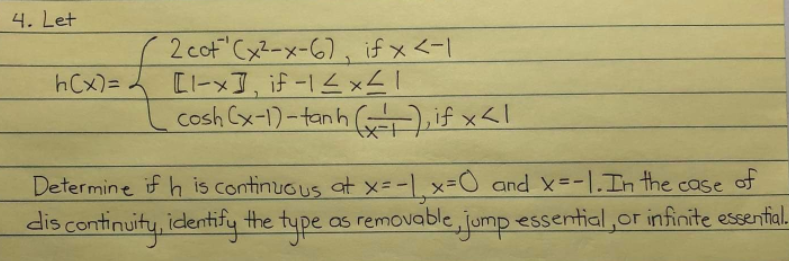 4. Let
2 cot⁻¹(x²-x-6), if x < -1
h(x)= { ⟦1-x⟧, if -1 ≤ x ≤ 1
cosh(x-1)-tanh(1/(x-1)), if x < 1
Determine if h is continuous at x=-1, x=0 and x=-1. In the case of
discontinuity, identify the type as removable, jump essential, or infinite essential.